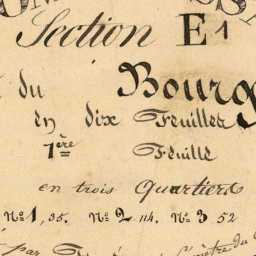 Section E1
du Bourg
en dix Feuilles
1ère Feuille
en trois Quartiers
N° 1, 35. N° 2 114. N° 3 52
par